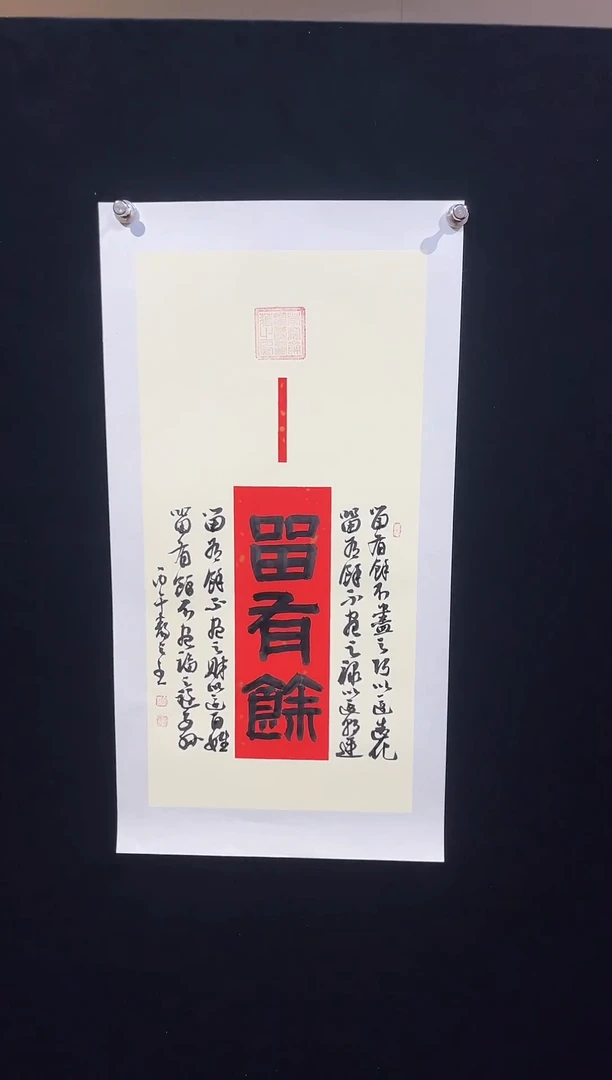 留有餘不盡之巧以還造化
留有餘不盡之祿以還朝廷
留有餘
留有餘不盡之財以還百姓
留有餘不盡福之子孫
丙午